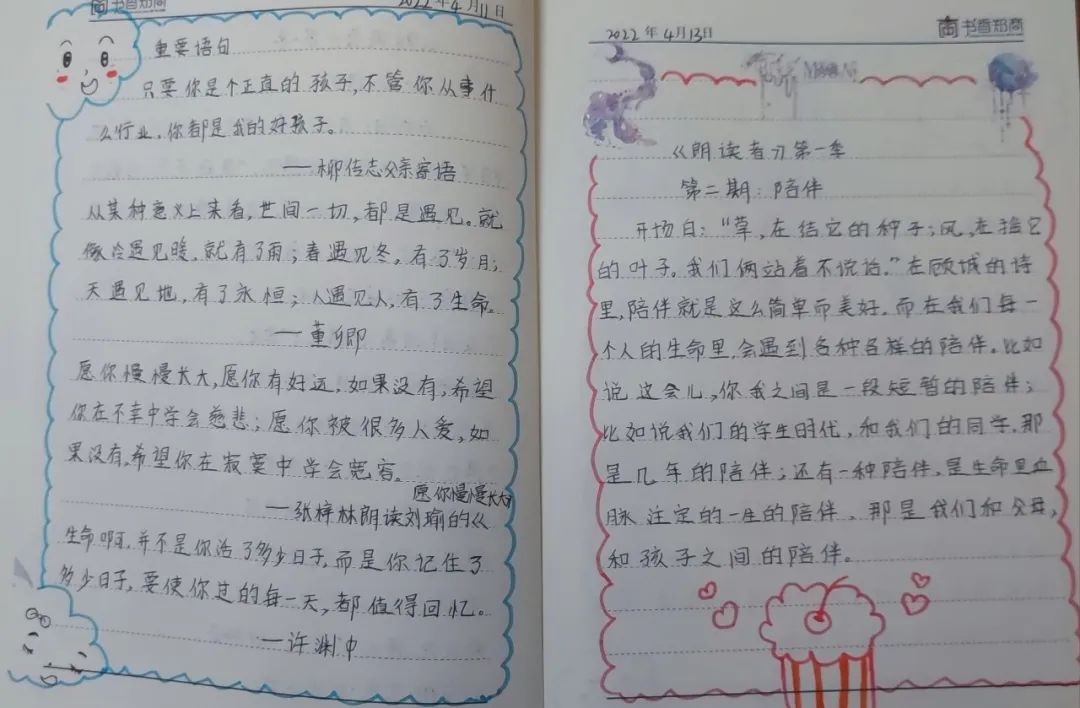 书香郑商
2022年4月11日
重要语句
只要你是个正真的孩子,不管你从事什
么行业,你都是我的好孩子。
——柳传志父亲寄语
从某种意义上来看,世间一切,都是遇见。就
像冷遇见暖,就有了雨;春遇见冬,有了岁月;
天遇见地,有了永恒;人遇见人,有了生命。
——董卿
愿你慢慢长大,愿你有好运,如果没有,希望
你在不幸中学会慈悲;愿你被很多人爱,如
果没有,希望你在寂寞中学会宽容。
愿你慢慢长大》
——张梓林朗读刘瑜的《
生命啊,并不是你活了多少日子,而是你记住了
多少日子,要使你过的每一天,都值得回忆。
——许渊冲
2022年4月13日
书香郑商
《朗读者》第一季
第二期:陪伴
开场白:“草,在结它的种子;风,在摇它
的叶子。我们俩站着不说话。”在顾城的诗
里,陪伴就是这么简单而美好。而在我们每一
个人的生命里,会遇到各种各样的陪伴。比如
说这会儿,你我之间是一段短暂的陪伴;
比如说我们的学生时代,和我们的同学,那
是几年的陪伴;还有一种陪伴,是生命里血
脉注定的一生的陪伴,那是我们和父母,
和孩子之间的陪伴。